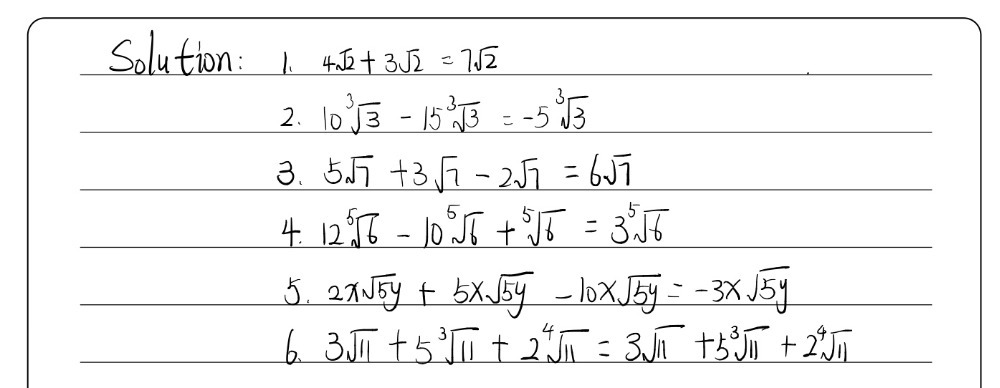 Solution: 1. 4√2 + 3√2 = 7√2
2. 10∛3 - 15∛3 = -5∛3
3. 5√7 + 3√7 - 2√7 = 6√7
4. 12⁵√6 - 10⁵√6 + ⁵√6 = 3⁵√6
5. 2x√5y + 5x√5y - 10x√5y = -3x√5y
6. 3√11 + 5∛11 + 2∜11 = 3√11 + 5∛11 + 2∜11